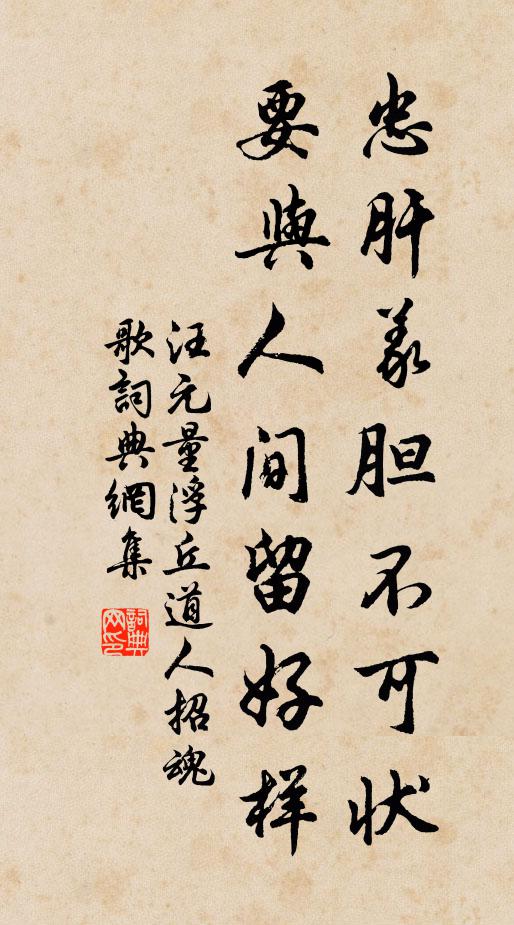 忠肝義胆不可状
要與人间留好样
汪元量浮丘道人招魂
歌詞典網集
詞典网印